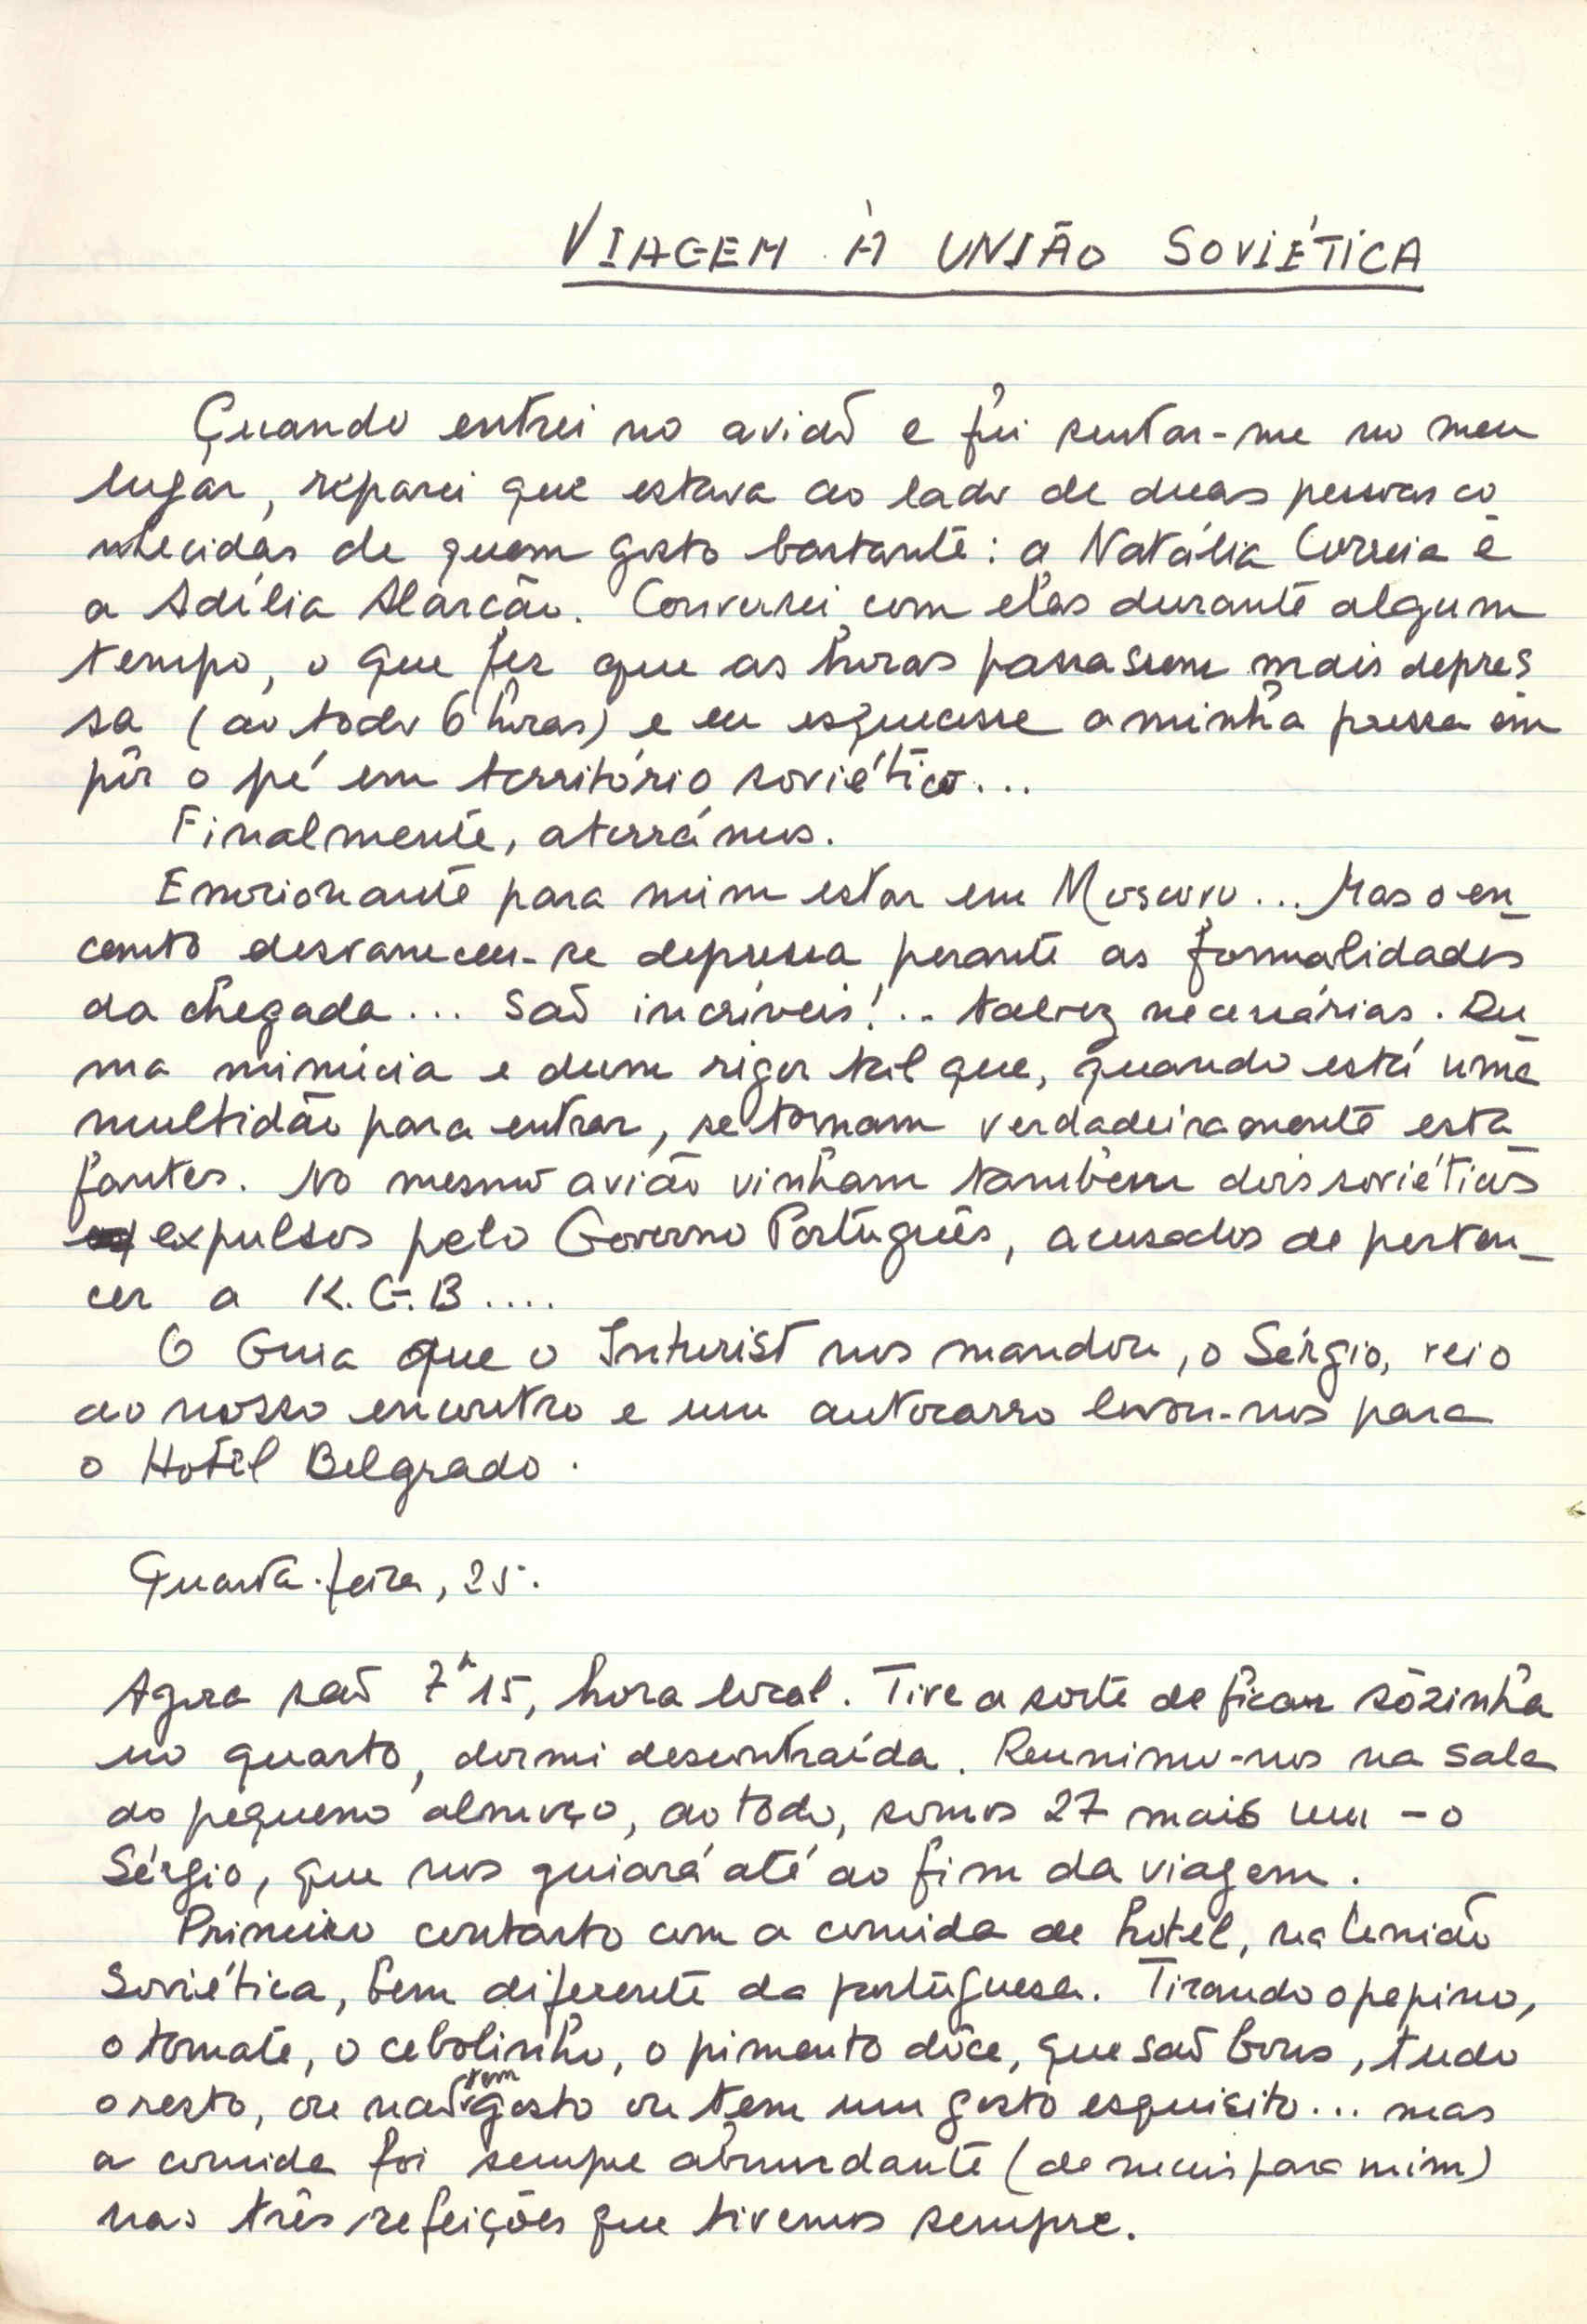 VIAGEM À UNIÃO SOVIÉTICA
Quando entrei no avião e fui sentar-me no meu
lugar, reparei que estava ao lado de duas pessoas co
nhecidas de quem gosto bastante: a Natália Correia e
a Adília Alarcão. Conversei com elas durante algum
tempo, o que fez que as horas passassem mais depres
sa (ao todo 6 horas) e eu esquecesse a minha pressa em
pôr o pé em território soviético...
Finalmente, aterrámos.
Emocionante para mim estar em Moscovo... Mas o en_
canto desvaneceu-se depressa perante as formalidades
da chegada... São incríveis!.. talvez necessárias. Du
ma minúcia e dum rigor tal que, quando está uma
multidão para entrar, se tornam verdadeiramente esta
fantes. No mesmo avião vinham também dois soviéticos
expulsos pelo Governo Português, acusados de perten_
cer a K.G.B....
O Guia que o Inturist nos mandou, o Sérgio, veio
ao nosso encontro e um autocarro levou-nos para
o Hotel Belgrado.
Quarta-feira, 25.
Agora são 7h15, hora local. Tive a sorte de ficar sòzinha
no quarto, dormi descontraída. Reunimo-nos na sala
do pequeno almoço, ao todo, somos 27 mais um - o
Sérgio, que nos guiará até ao fim da viagem.
Primeiro contacto com a comida de hotel, na União
Soviética, bem diferente da portuguesa. Tirando o pepino,
o tomate, o cebolinho, o pimento dôce, que são bons, tudo
o resto, ou não tem gosto ou tem um gosto esquisito... mas
a comida foi sempre abundante (de mais para mim)
nas três refeições que tivemos sempre.